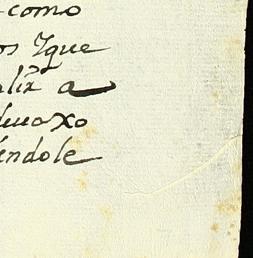 como
os Yque
alir a
avaxo
endole